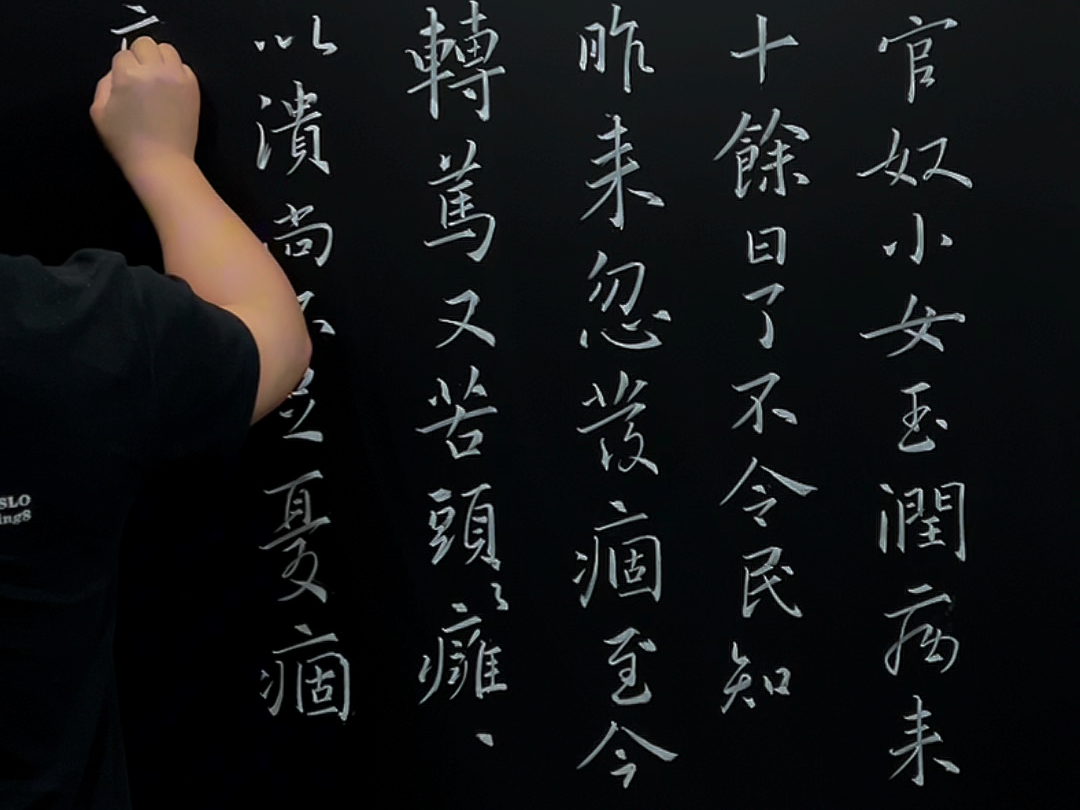 官奴小女玉潤病来
十餘日了不令民知
昨来忽發痼至今
轉篤又苦頭〻癰、
以潰尚不足憂痼
SLO
ing8